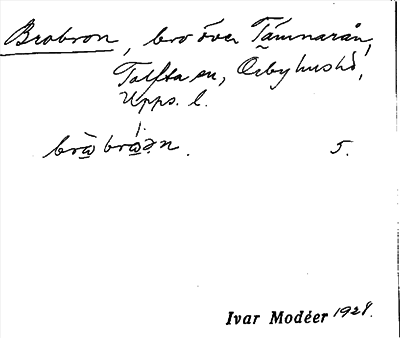 Brobron, bro över Tämnarån,
Tolfta sn, Örbyhus hd,
Upps. l.
brὼ brὼən. 5.
Ivar Modéer 1928.